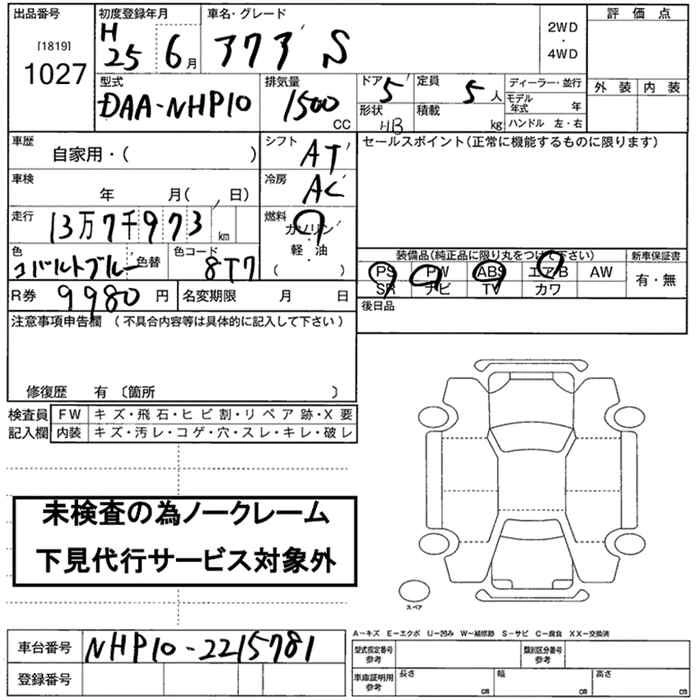 出品番号
[1819]
1027
初度登録年月
H 25 6月
車名・グレード
アクア S
2WD
・
4WD
評価点
外装 内装
型式
DAA-NHP10
排気量
1500 CC
ドア 5
形状 HB
定員 5人
積載 kg
ディーラー・並行
モデル年式 年
ハンドル 左・右
車歴
自家用・( )
シフト AT
セールスポイント(正常に機能するものに限ります)
車検 年 月( , 日)
冷房 AC
走行 13万7千973 km
燃料
ガソリン
軽・油
( ・ )
色 コバルトブルー 色替
色コード 8T7
装備品(純正品に限り丸をつけて下さい)
新車保証書
PS PW ABS エアB AW
SR ナビ TV カワ
有・無
R券 9980円
名変期限 月 日
後日品
注意事項申告欄 (不具合内容等は具体的に記入して下さい)
修復歴 有 〔箇所 〕
検査員記入欄
FW キズ・飛石・ヒビ割・リペア跡・X要
内装 キズ・汚レ・コゲ・穴・スレ・キレ・破レ
未検査の為ノークレーム
下見代行サービス対象外
スペア
車台番号 NHP10-2215781
登録番号
A−キズ E−エクボ U−凹み W−補修跡 S−サビ C−腐食 XX−交換済
型式指定番号 参考
類別区分番号 参考
車庫証明用 参考
長さ cm
幅 cm
高さ cm